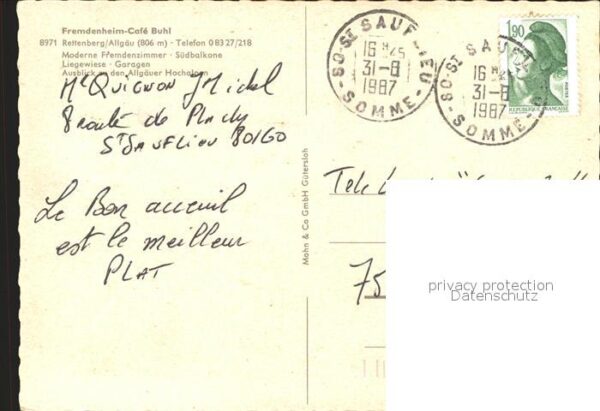 Fremdenheim-Café Buhl
8971 Rettenberg/Allgäu (806 m) - Telefon 0 83 27/218
Moderne Fremdenzimmer · Südbalkone
Liegewiese - Garagen
Ausblick zu den Allgäuer Hochalpen
Mr QUIGNON J Michel
8 route de Plachy
St SAUFLIEU 80160
Le Bon accueil
est le meilleur
PLAT
Mohn & Co GmbH Gütersloh
80-St SAUFLIEU
16 H 45
31-8
1987
SOMME
80-St SAUFLIEU
16 H 45
31-8
1987
SOMME
1,90
REPUBLIQUE FRANÇAISE
POSTES
Tele
75
privacy protection
Datenschutz